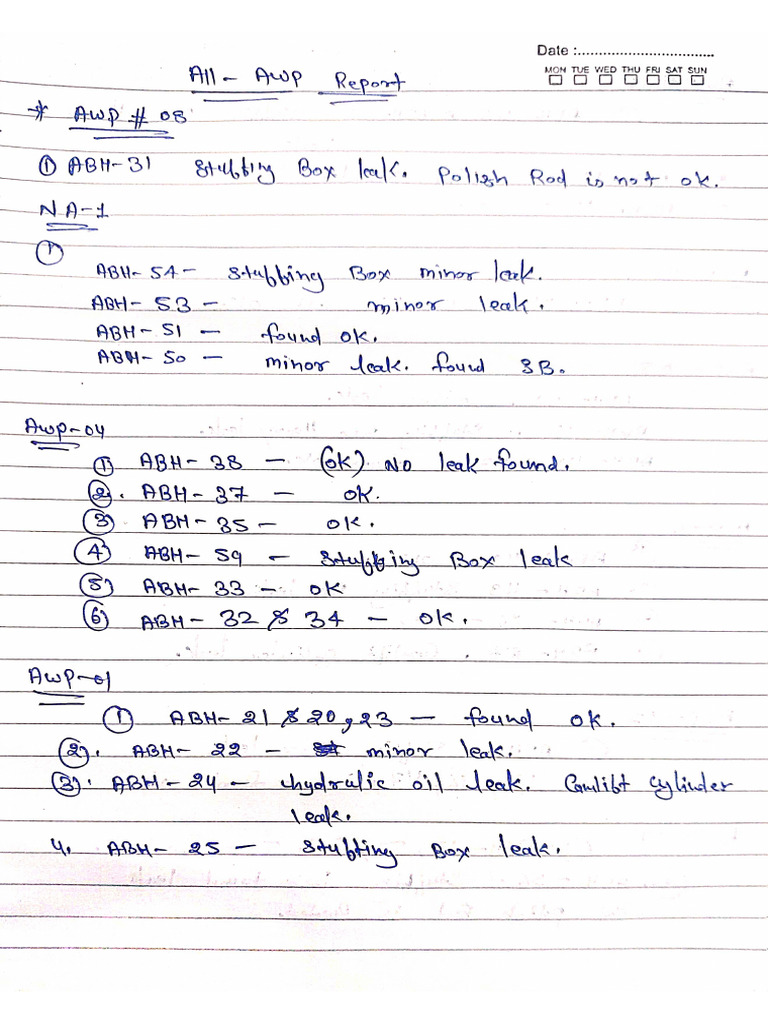 Date :................................
MON TUE WED THU FRI SAT SUN
All - AWP Report
* AWP # 08
① ABH-31 Stuffing Box leak. Polish Rod is not ok.
NA-1
①
ABH-54 - Stuffing Box minor leak.
ABH-53 - minor leak.
ABH-51 - found ok.
ABH-50 - minor leak. found SB.
AWP-04
① ABH-38 - (OK) No leak found.
②. ABH-37 - OK.
③ ABH-35 - OK.
④ ABH-59 - Stuffing Box leak
⑤ ABH-33 - OK
⑥ ABH-32 & 34 - OK.
AWP-01
① ABH-21 & 20, 23 - found ok.
②. ABH-22 - minor leak.
③. ABH-24 - hydralic oil leak. Camlift cylinder
leak.
4. ABH-25 - Stuffing Box leak.